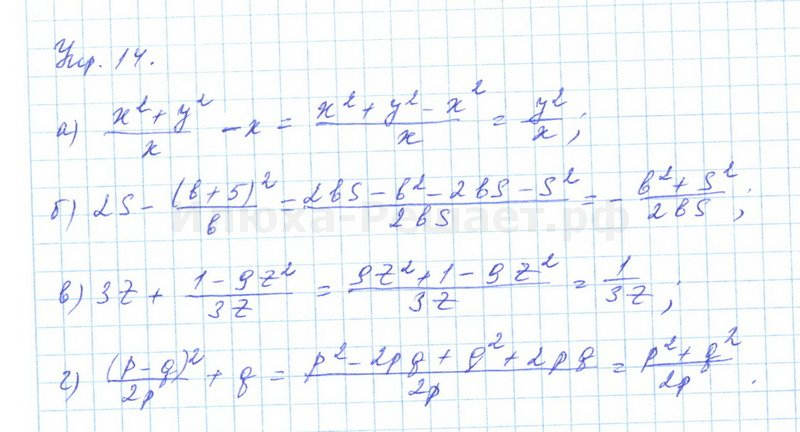 Упр. 14.
а) (x² + y²)/x - x = (x² + y² - x²)/x = y²/x ;
б) 2S - (b + S)²/b = (2bS - b² - 2bS - S²)/2bS = - (b² + S²)/2bS ;
Илюха-Решает.рф
в) 3z + (1 - 9z²)/3z = (9z² + 1 - 9z²)/3z = 1/3z ;
г) (p - q)²/2p + q = (p² - 2pq + q² + 2pq)/2p = (p² + q²)/2p .